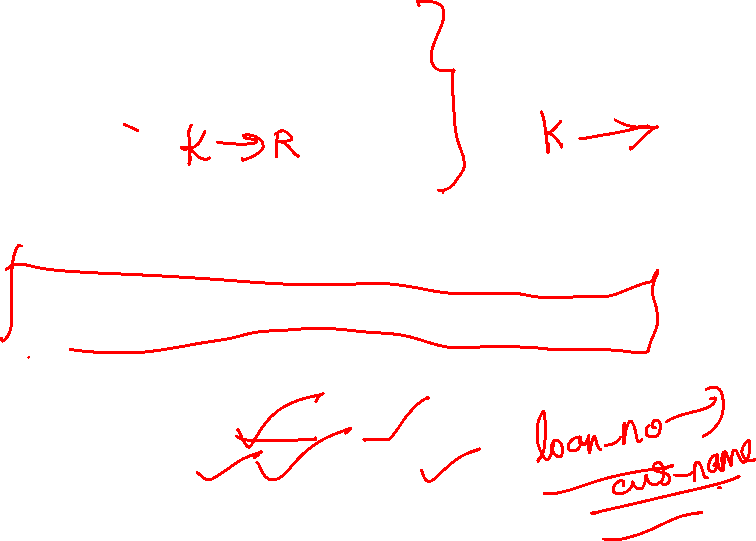 K → R } K →
loan-no →
cus-name